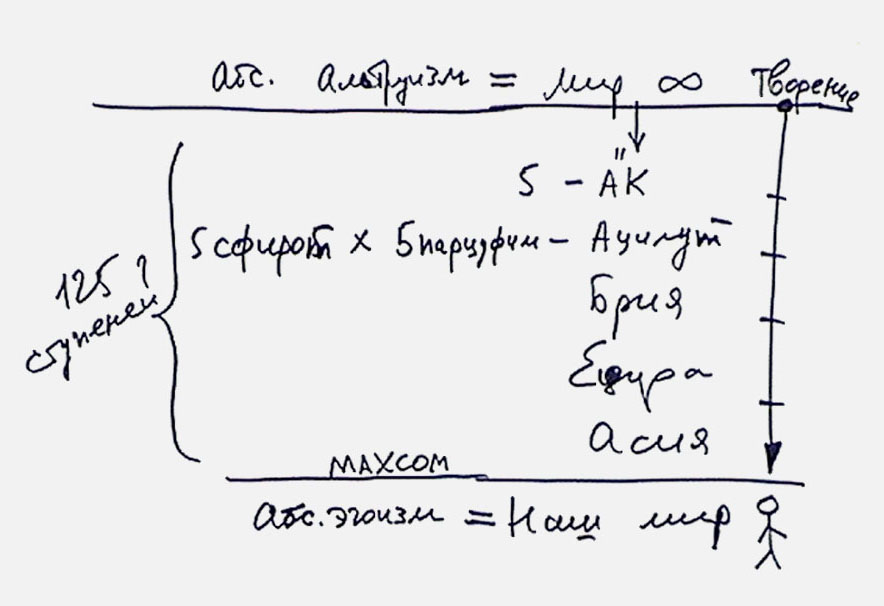 Абс. альтруизм = Мир ∞ Творение
5 - "АК
5 сфирот x 5 парцуфим - Ацилут
Брия
Ецира
Асия
125 ?
ступеней
МАХСОМ
Абс. эгоизм = Наш мир